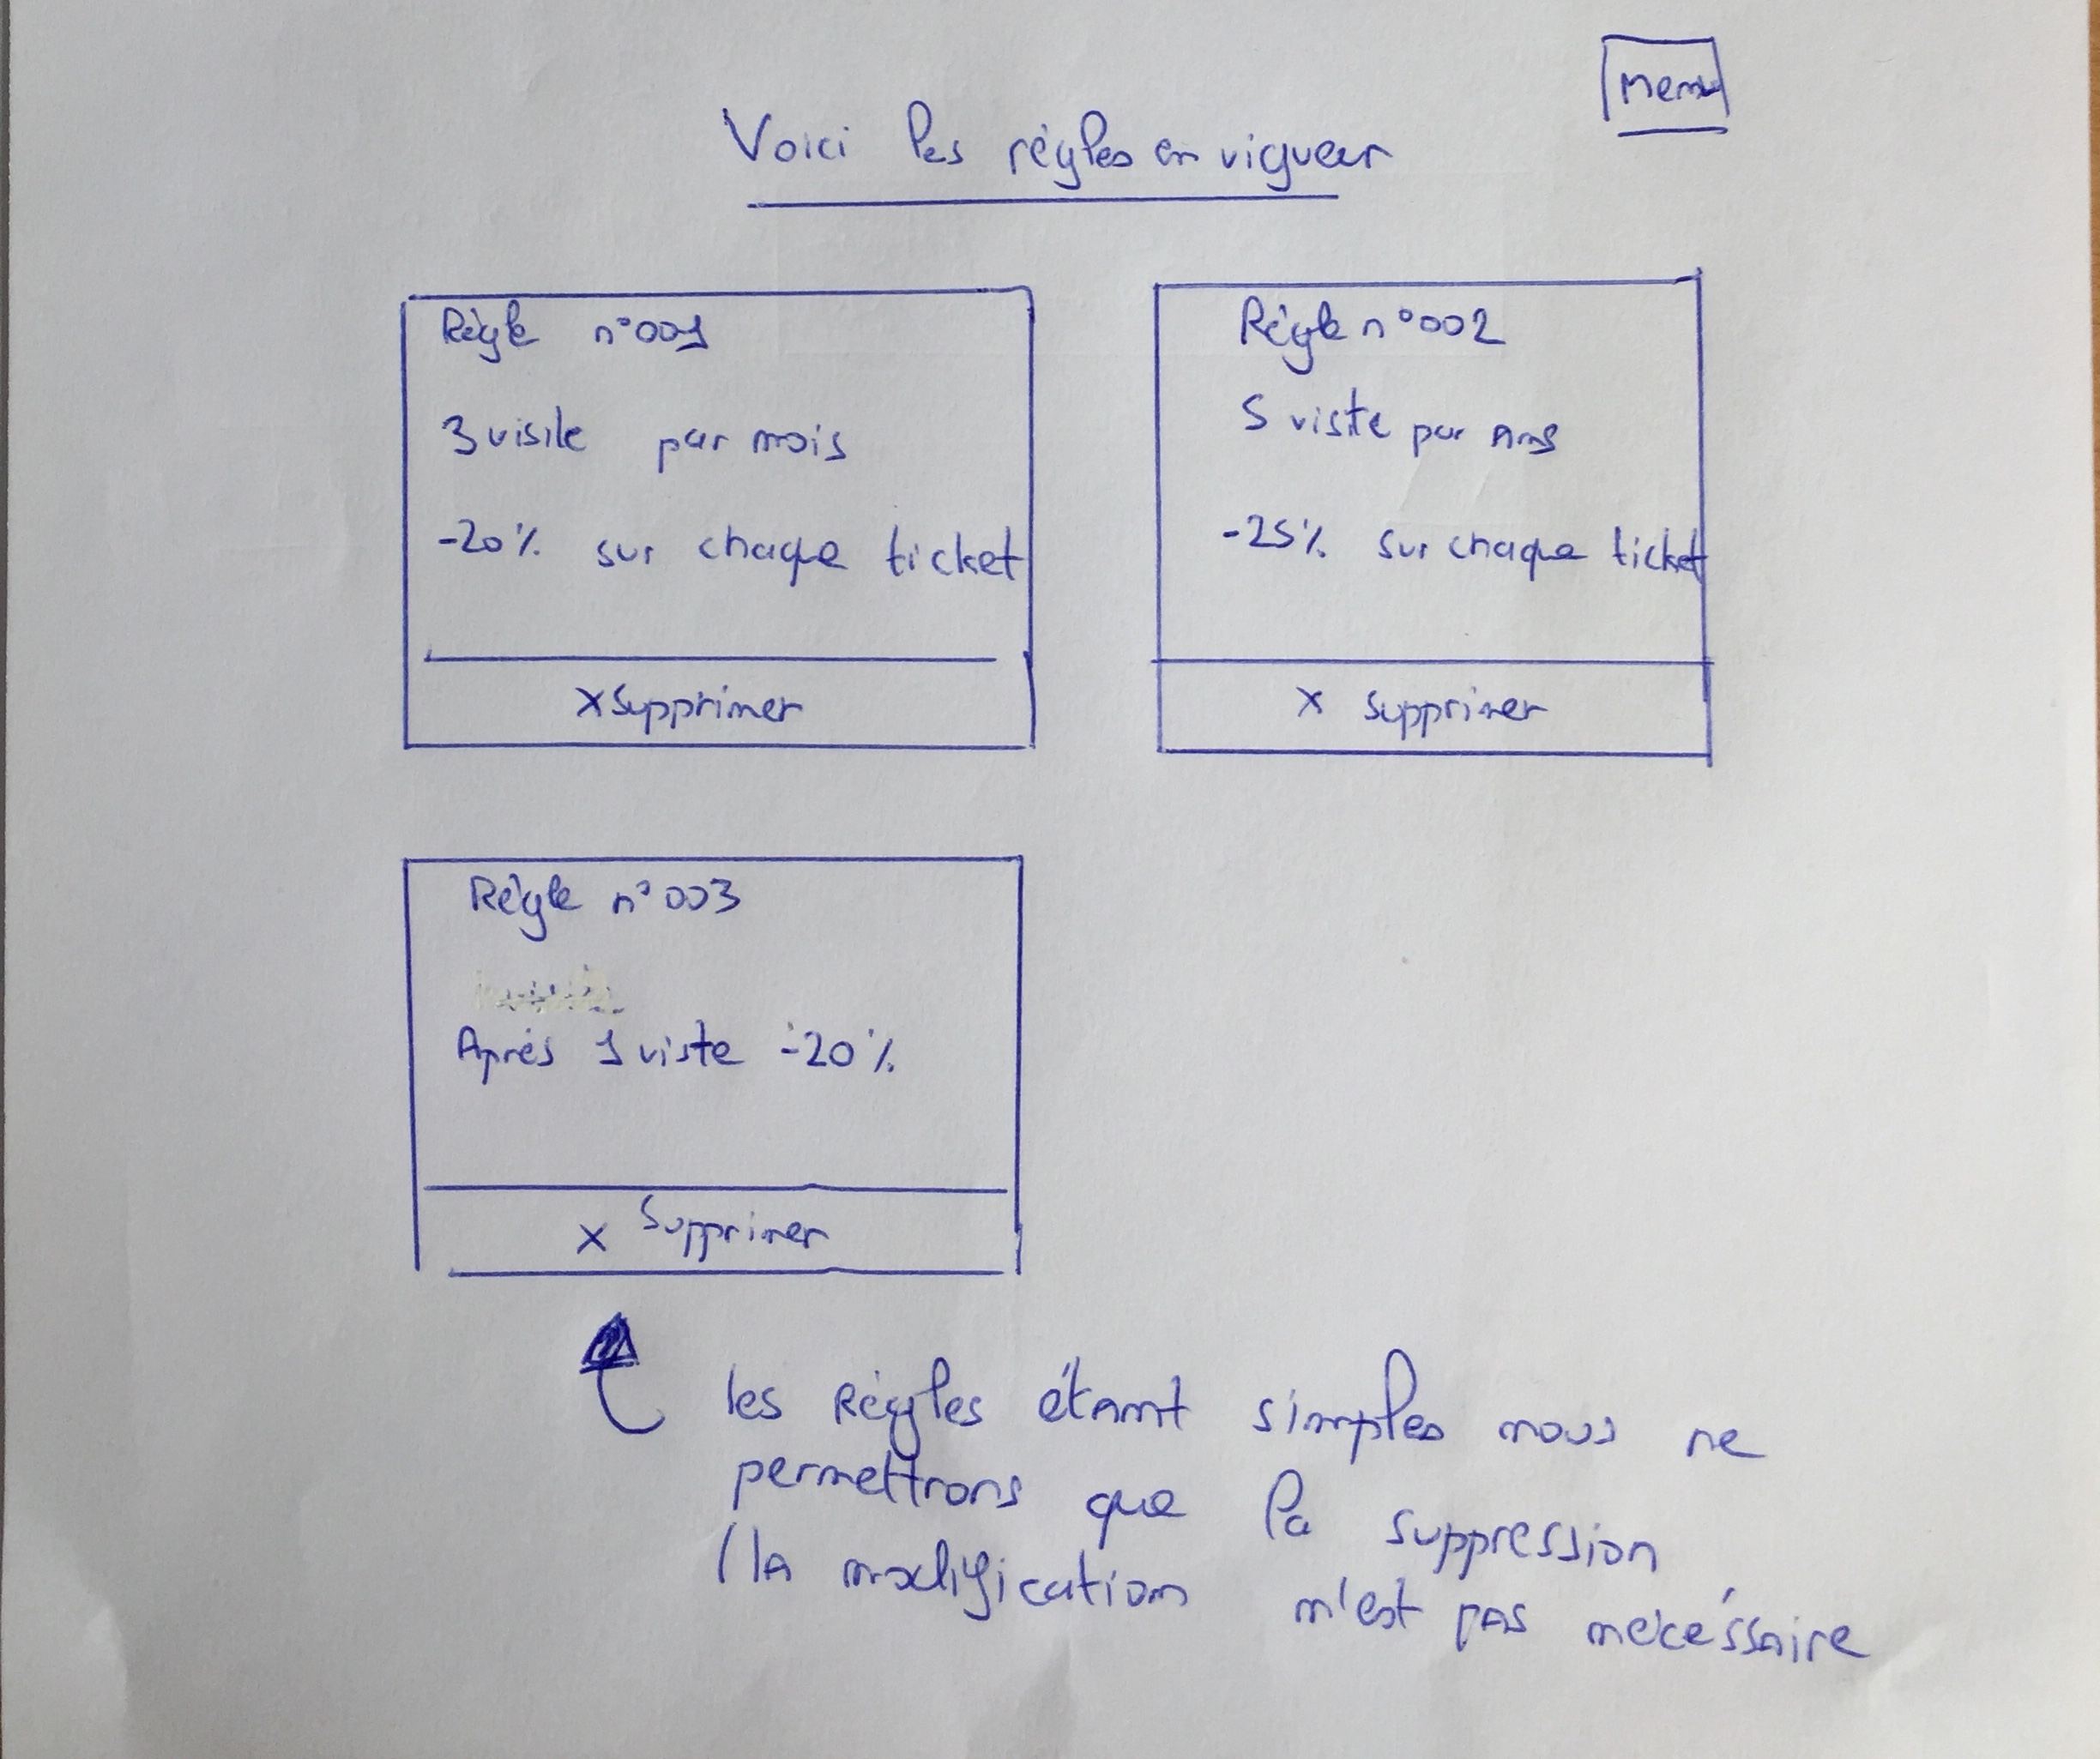 Menu
Voici les règles en vigueur
Règle n°001
3 visite par mois
-20% sur chaque ticket
X Supprimer
Règle n°002
5 viste par Ans
-25% sur chaque ticket
X Supprimer
Règle n°003
Après 1 viste -20%
X Supprimer
les Règles étant simples nous ne
permettrons que la suppression
(la modification n'est pas nécéssaire